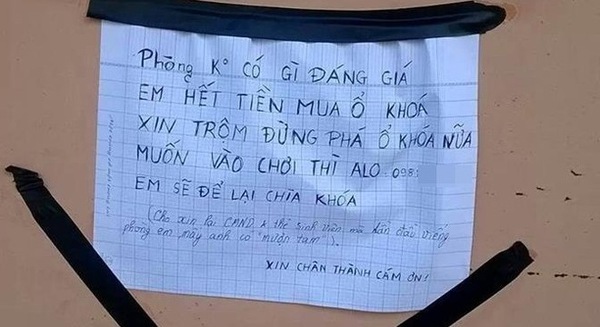 Phòng K° CÓ GÌ ĐÁNG GIÁ
EM HẾT TIỀN MUA Ổ KHOÁ
XIN TRỘM ĐỪNG PHÁ Ổ KHÓA NỮA
MUỐN VÀO CHƠI THÌ ALO 098
EM SẼ ĐỂ LẠI CHÌA KHÓA
(Cho xin lại CMND & thẻ sinh viên mà lần đầu viếng
phòng em mấy anh có "mượn tạm").
XIN CHÂN THÀNH CẢM ƠN!